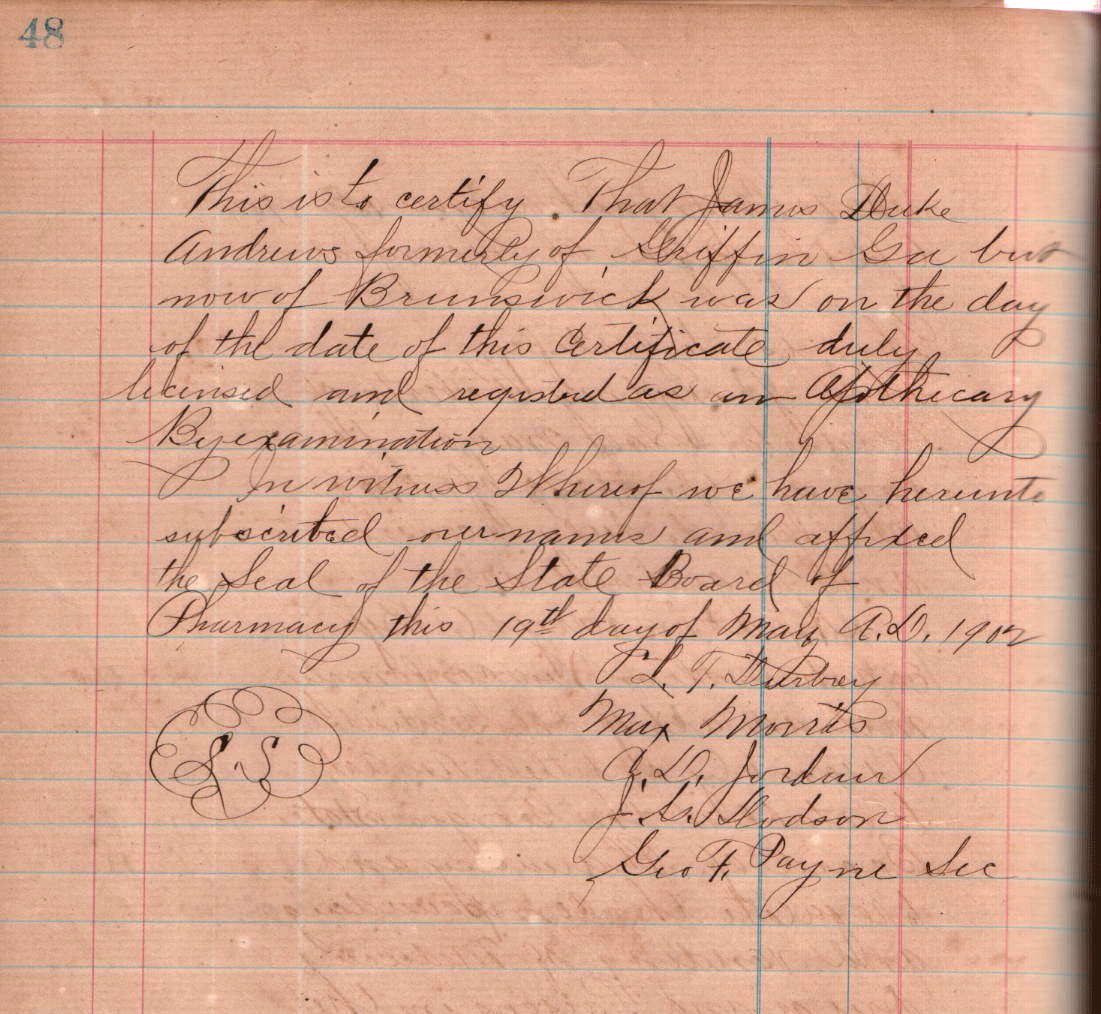 48
This is to certify That James Duke
Andrews formerly of Griffin Ga but
now of Brunswick was on the day
of the date of this Certificate duly
licensed and registerd as an Apothecary
By examination
In witness Whereof we have hereunto
subscribed our names and affixed
the Seal of the State Board of
Pharmacy this 19th day of May A.D. 1902
Max Morris
C. D. Jordan
J. G. Dodson
S.S
Geo F. Payne Sec